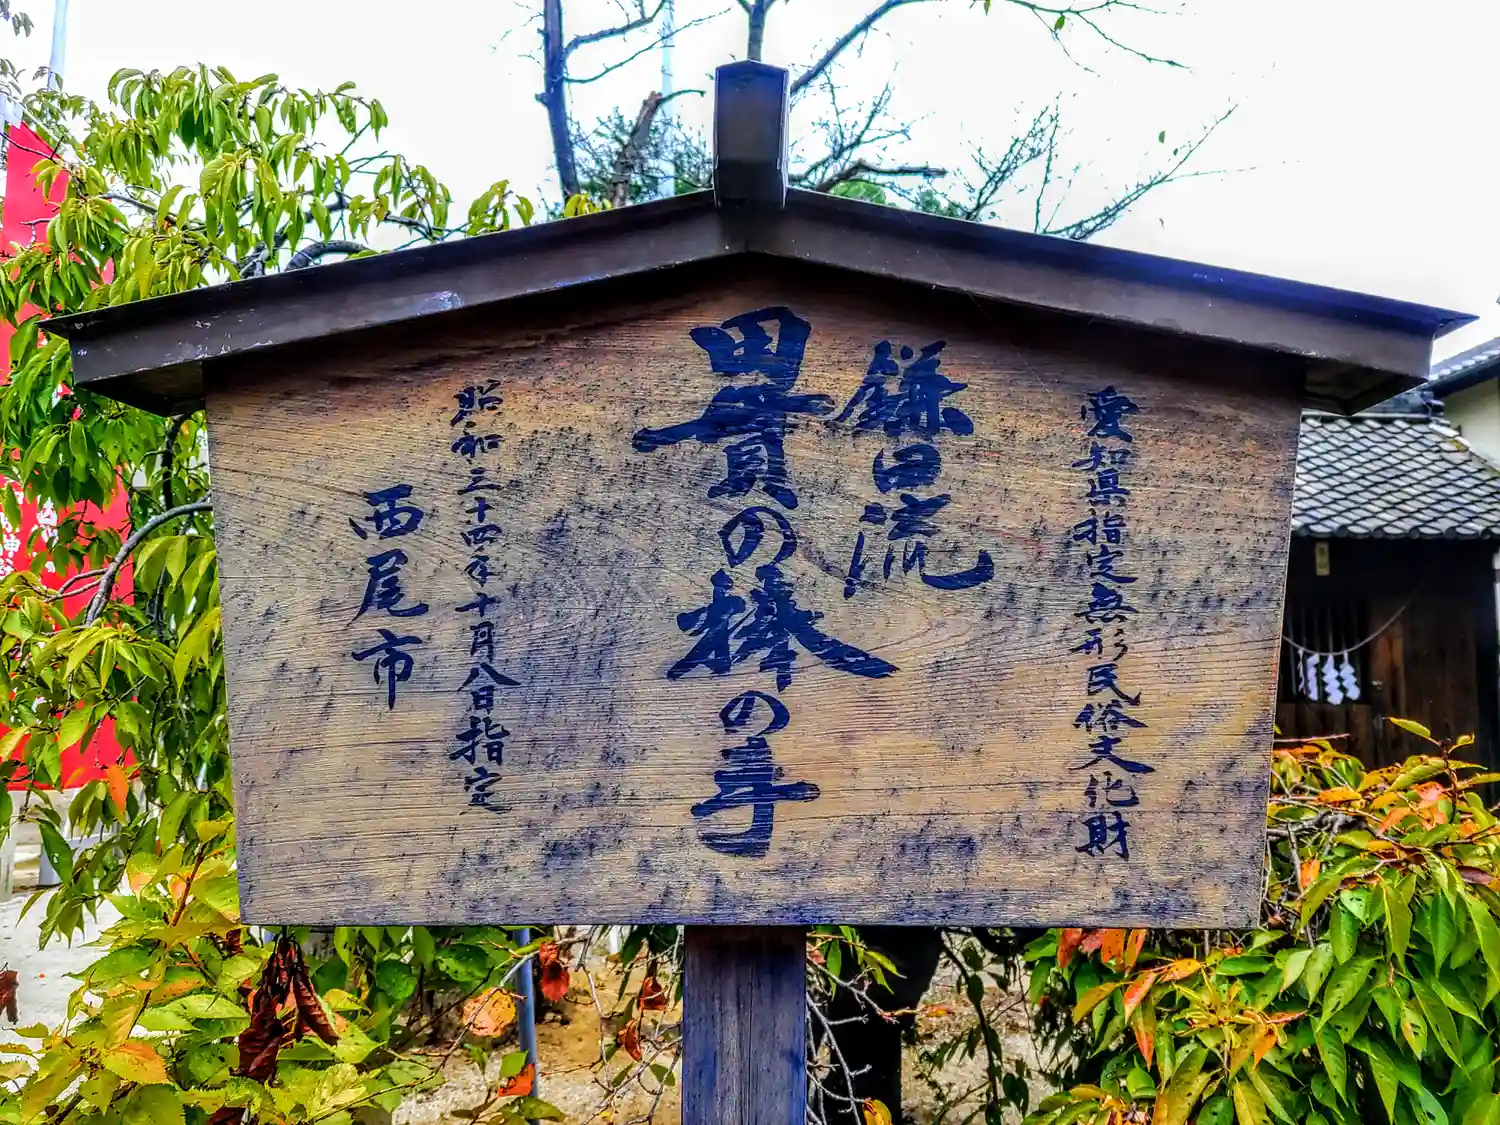 愛知県指定無形民俗文化財
鎌田流
田貫の棒の手
昭和三十四年十月八日指定
西尾市